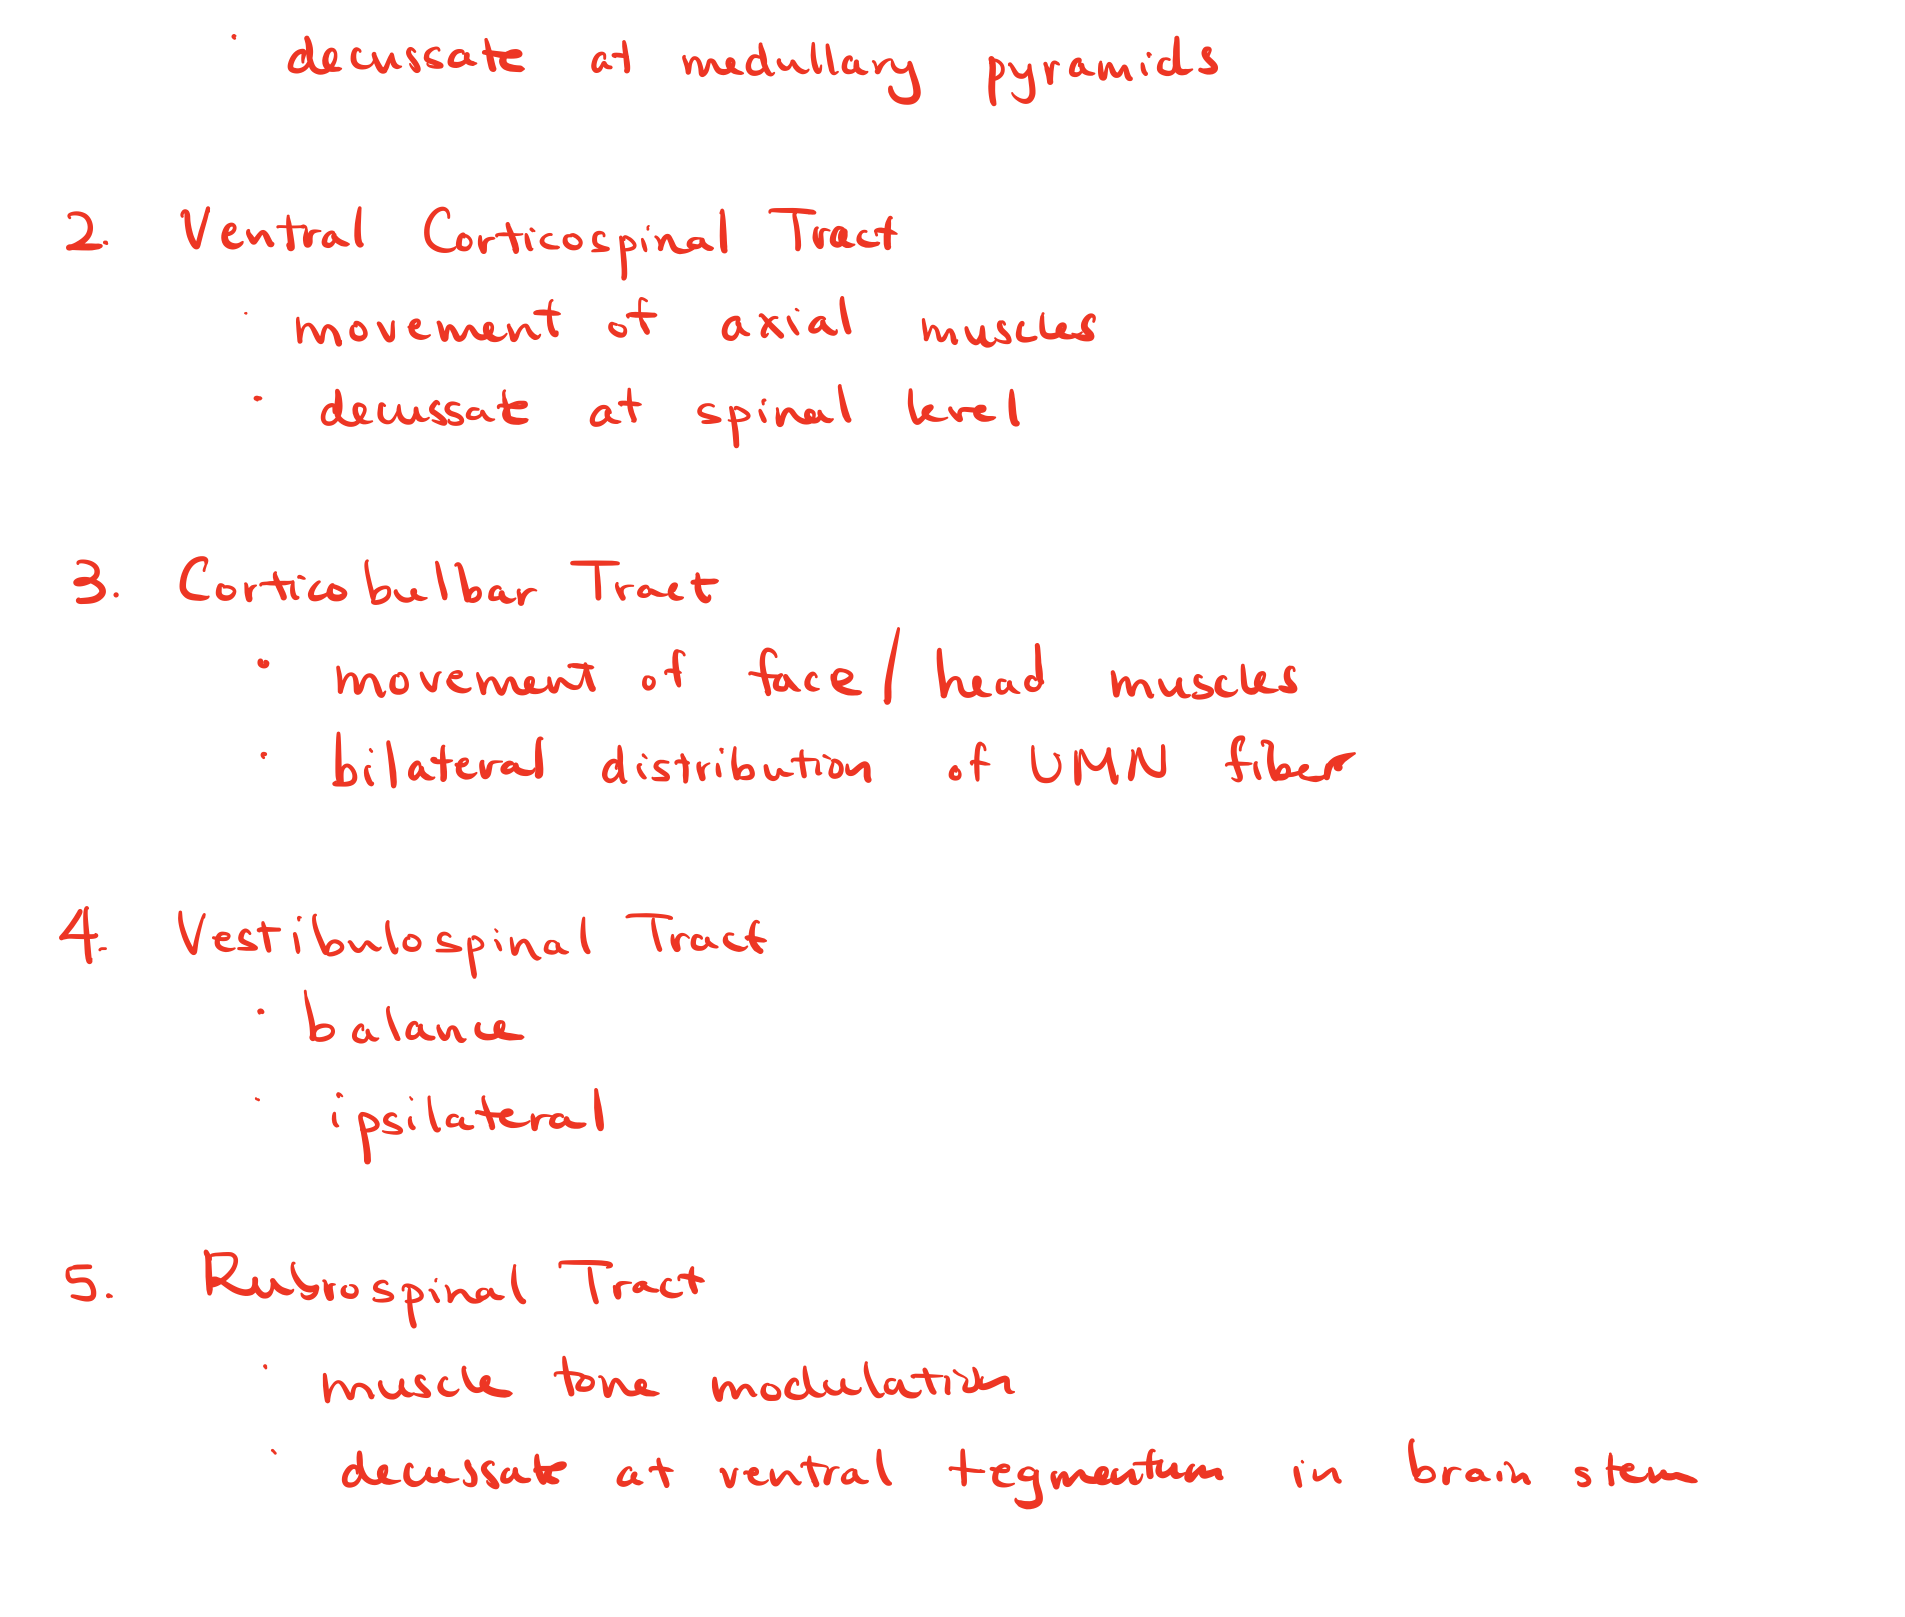 · decussate at medullary pyramids
2. Ventral Corticospinal Tract
· movement of axial muscles
· decussate at spinal level
3. Corticobulbar Tract
· movement of face/head muscles
· bilateral distribution of UMN fiber
4. Vestibulospinal Tract
· balance
· ipsilateral
5. Rubrospinal Tract
· muscle tone modulation
· decussate at ventral tegmentum in brain stem